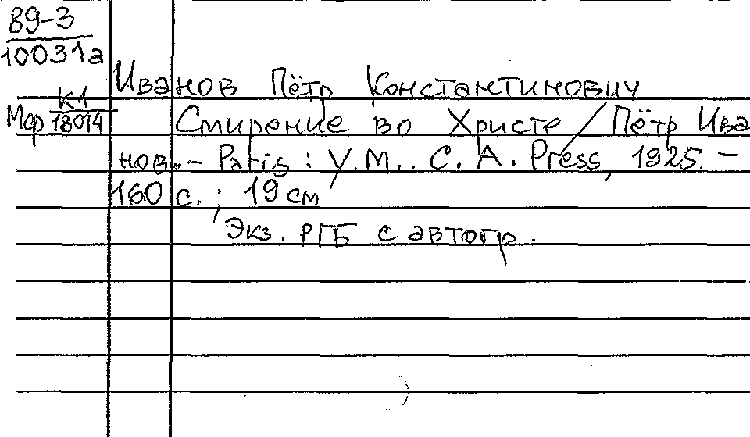 В9-3
10031а
Иванов Пётр Константинович
Мф К1
18014
Смирение во Христе / Пётр Ива
нов. - Paris : Y.M.. C. A. Press, 1925. -
160 с. ; 19 см
Экз. РГБ с автогр.